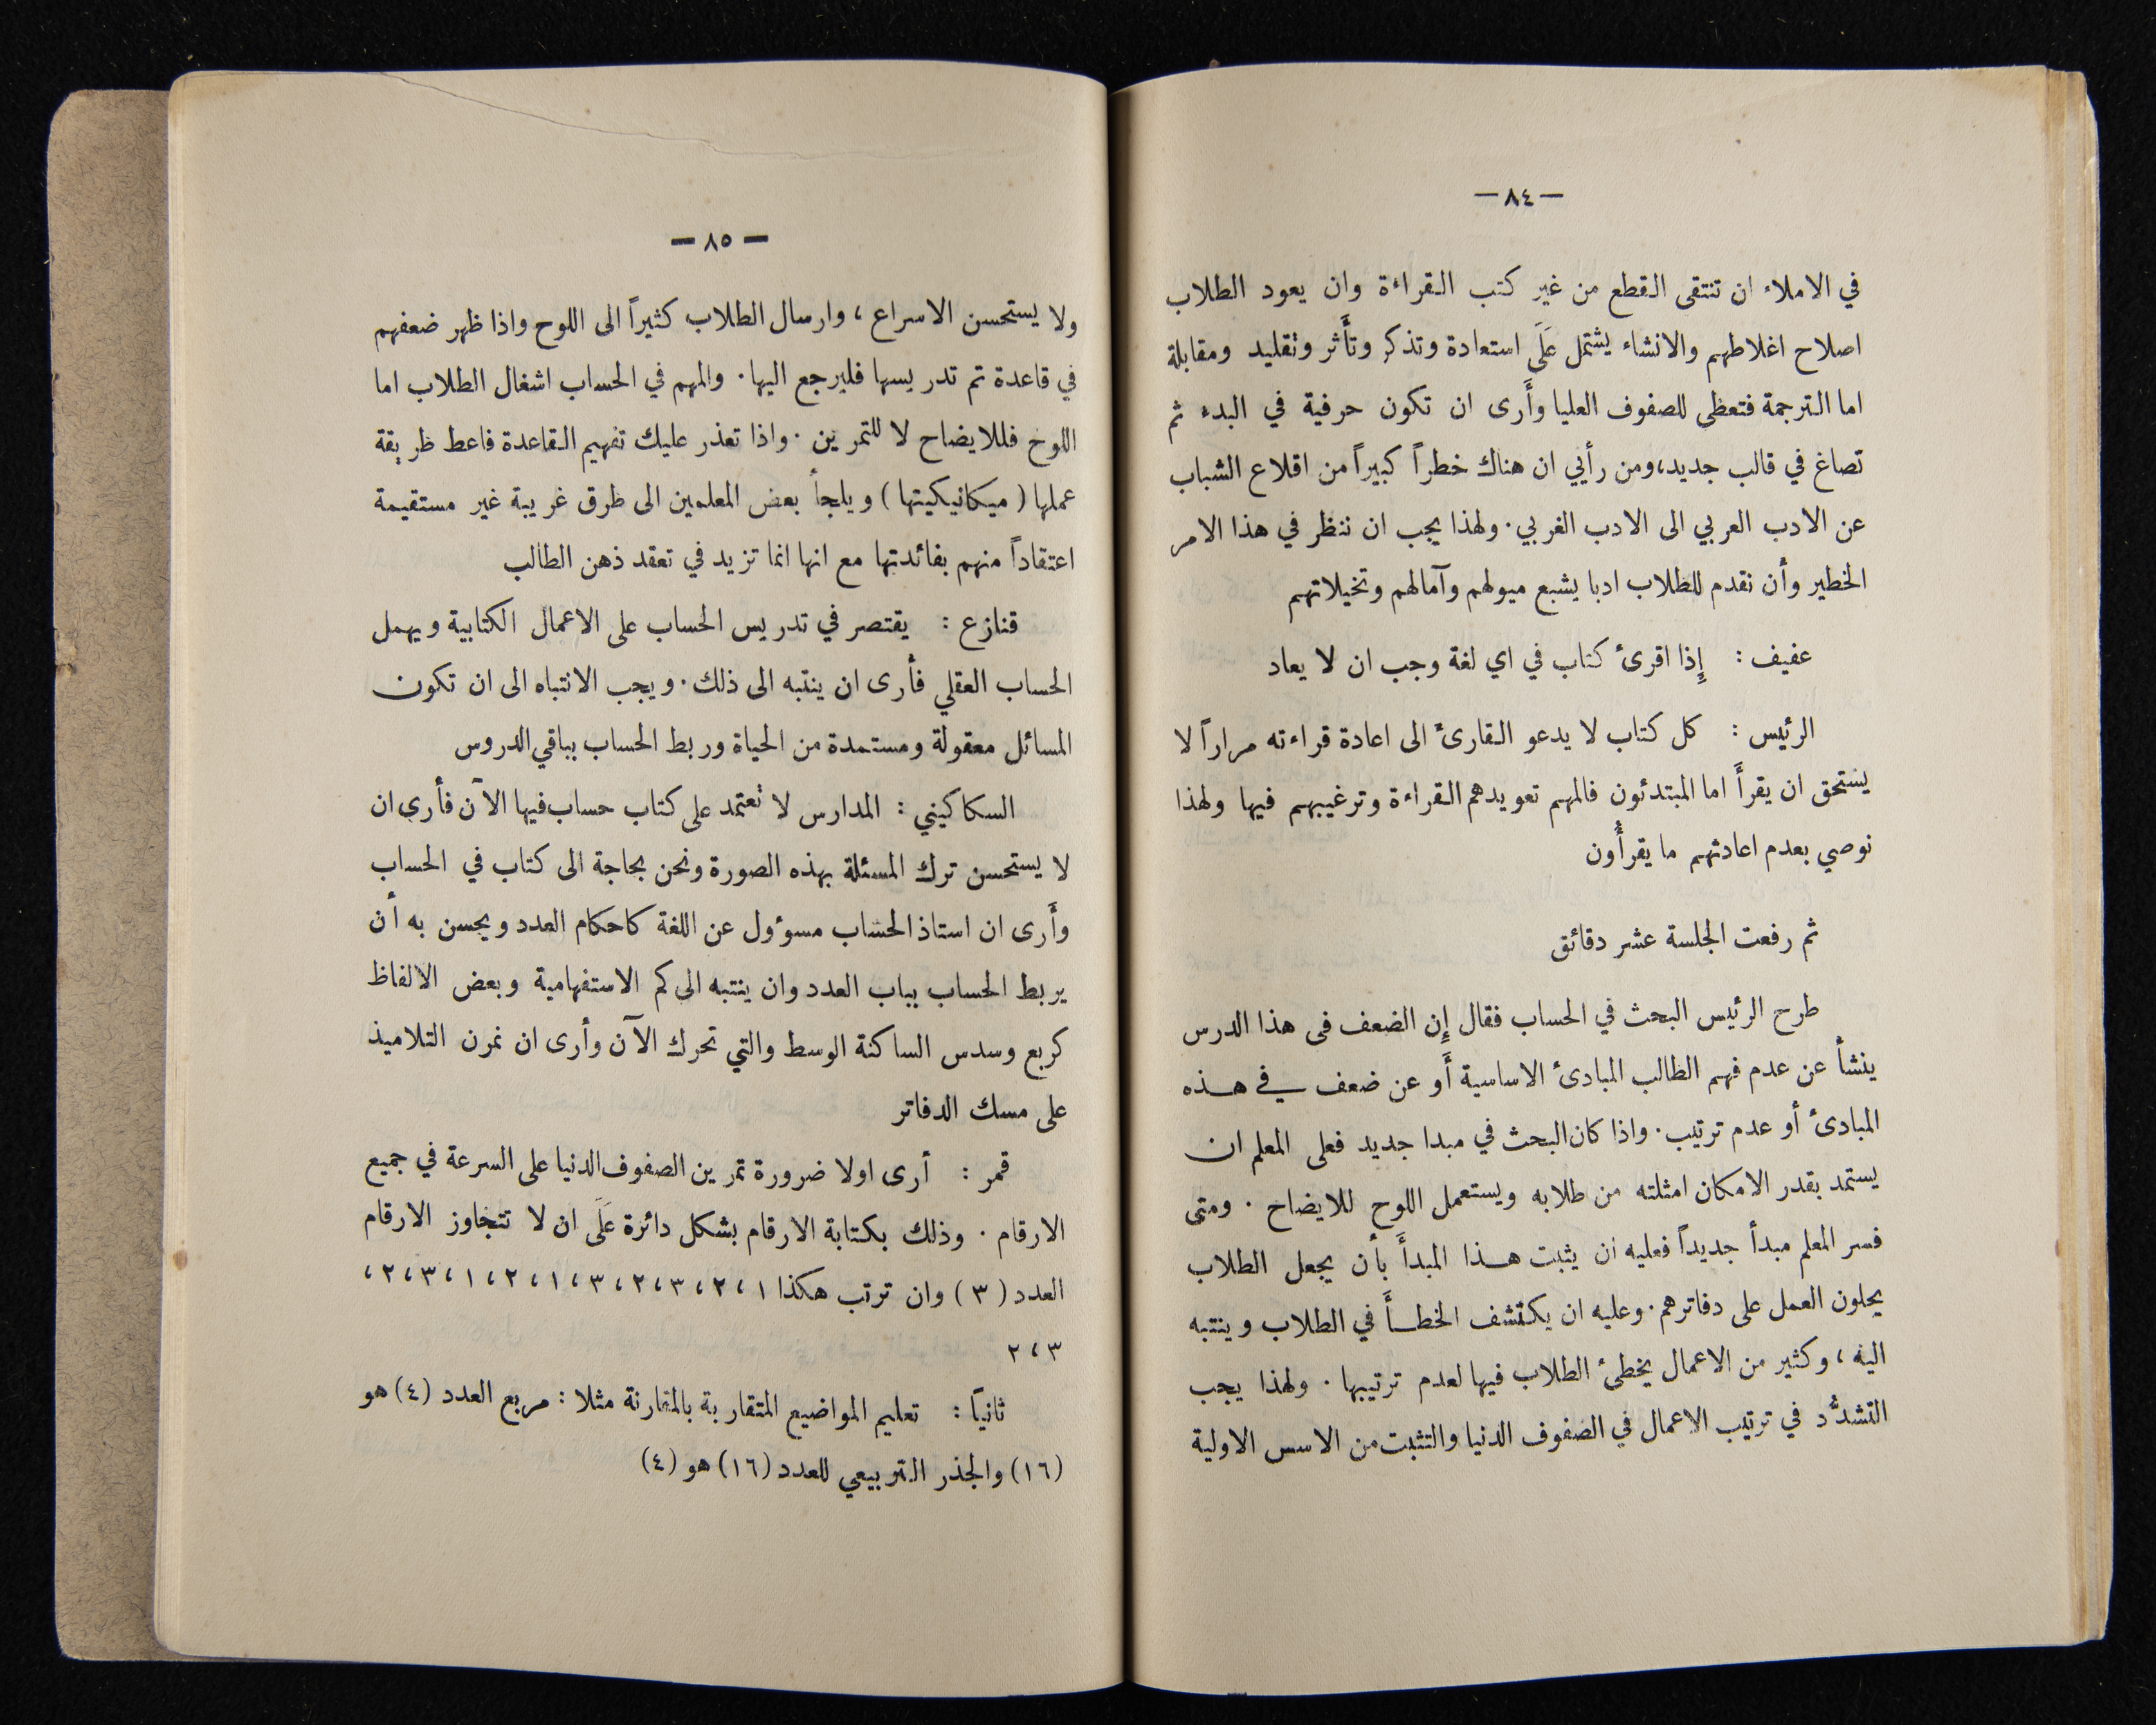 —٨٤—
في الاملاء ان تنتقى القطع من غير كتب القراءة وان يعود الطلاب
اصلاح اغلاطهم والانشاء يشتمل عَلَى استعادة وتذكر وتأَثر وتقليد ومقابلة
اما الترجمة فتعطى للصفوف العليا وأَرى ان تكون حرفية في البدء ثم
تصاغ في قالب جديد، ومن رأيي ان هناك خطراً كبيراً من اقلاع الشباب
عن الادب العربي الى الادب الغربي. ولهذا يجب ان ننظر في هذا الامر
الخطير وأن نقدم للطلاب ادبا يشبع ميولهم وآمالهم وتخيلاتهم
عفيف : إِذا اقرئ كتاب في اي لغة وجب ان لا يعاد
الرئيس : كل كتاب لا يدعو القارئ الى اعادة قراءته مراراً لا
يستحق ان يقرأَ اما المبتدئون فالمهم تعويدهم القراءة وترغيبهم فيها ولهذا
نوصي بعدم اعادتهم ما يقرأُون
ثم رفعت الجلسة عشر دقائق
طرح الرئيس البحث في الحساب فقال إِن الضعف فى هذا الدرس
ينشأ عن عدم فهم الطالب المبادئ الاساسية أَو عن ضعف في هـذه
المبادئ أو عدم ترتيب. واذا كان البحث في مبدا جديد فعلى المعلم ان
يستمد بقدر الامكان امثلته من طلابه ويستعمل اللوح للايضاح . ومتى
فسر المعلم مبدأ جديداً فعليه ان يثبت هـذا المبدأَ بأن يجعل الطلاب
يحلون العمل على دفاترهم. وعليه ان يكتشف الخطـأَ في الطلاب وينتبه
اليه ، وكثير من الاعمال يخطئ الطلاب فيها لعدم ترتيبها . ولهذا يجب
التشدُّد في ترتيب الاعمال في الصفوف الدنيا والتثبت من الاسس الاولية
— ٨٥ —
ولا يستحسن الاسراع ، وارسال الطلاب كثيراً الى اللوح واذا ظهر ضعفهم
في قاعدة تم تدريسها فليرجع اليها. والمهم في الحساب اشغال الطلاب اما
اللوح فللايضاح لا للتمرين . واذا تعذر عليك تفهيم القاعدة فاعط طريقة
عملها ( ميكانيكيتها ) ويلجأ بعض المعلمين الى طرق غريبة غير مستقيمة
اعتقاداً منهم بفائدتها مع انها انما تزيد في تعقد ذهن الطالب
قنازع : يقتصر في تدريس الحساب على الاعمال الكتابية ويهمل
الحساب العقلي فأرى ان ينتبه الى ذلك. ويجب الانتباه الى ان تكون
المسائل معقولة ومستمدة من الحياة وربط الحساب بباقي الدروس
السكاكيني : المدارس لا تعتمد على كتاب حساب فيها الآن فأرى ان
لا يستحسن ترك المسئلة بهذه الصورة ونحن بحاجة الى كتاب في الحساب
وأَرى ان استاذ الحساب مسوءول عن اللغة كاحكام العدد ويحسن به أن
يربط الحساب بباب العدد وان ينتبه الى كم الاستفهامية وبعض الالفاظ
كربع وسدس الساكنة الوسط والتي تحرك الآن وأرى ان نمرن التلاميذ
على مسك الدفاتر
قمر : أرى اولا ضرورة تمرين الصفوف الدنيا على السرعة في جميع
الارقام . وذلك بكتابة الارقام بشكل دائرة عَلَى ان لا تتجاوز الارقام
العدد ( ٣ ) وان ترتب هكذا ١ ، ٢ ، ٣ ، ٢ ، ٣ ، ١ ، ٢ ، ١ ، ٣ ، ٢ ،
٣ ، ٢
ثانياً : تعليم المواضيع المتقاربة بالمقارنة مثلا : مربع العدد (٤) هو
(١٦) والجذر التربيعي للعدد (١٦) هو (٤)